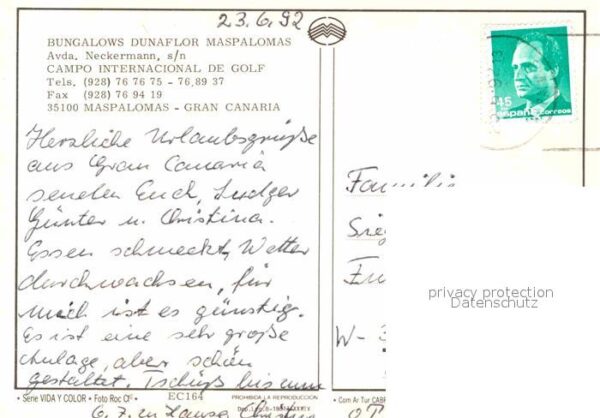 23.6.92
BUNGALOWS DUNAFLOR MASPALOMAS
Avda. Neckermann, s/n
CAMPO INTERNACIONAL DE GOLF
Tels. (928) 76 76 75 - 76,89 37
Fax (928) 76 94 19
35100 MASPALOMAS - GRAN CANARIA
45
españa correos
Herzliche Urlaubsgrüße
aus Gran Canaria
senden Euch, Ludger
Günter u. Christina.
Essen schmeckt, Wetter
durchwachsen, für
mich ist es günstig.
Es ist eine sehr große
Anlage, aber schön
gestaltet. Tschüß bis zum
6.7. zu Hause Christina
Familie
Sieg
W-3
privacy protection
Datenschutz
• Serie VIDA Y COLOR • Foto Roc Cº •
EC164
PROHIBIDA LA REPRODUCCION
• Com Ar Tur CABR